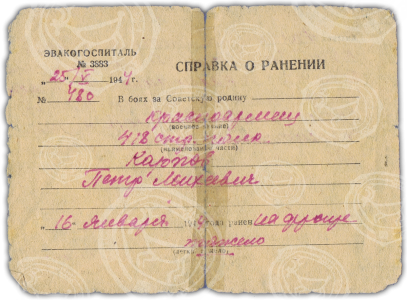 ЭВАКОГОСПИТАЛЬ
№ 3883
„25" V 1944 г.
№ 480
СПРАВКА О РАНЕНИИ
В боях за Советскую родину
красноармеец
(военное звание)
418 стр. полка
(наименование части)
Петр Михеевич
„16" января 194 г. ранен на фронте
тяжело